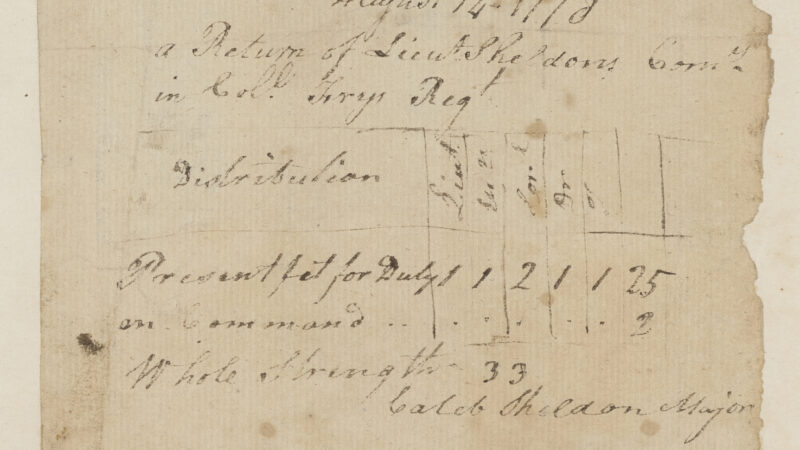 August 14 1778
a Return of Lieut Sheldons Comy
in Coll Frys Regt
Distribution Lieut En Cor Dr
Present fit for Duty 1 1 2 1 1 25
on Command .. . . . . . 2
Whole Strength 33
Caleb Sheldon Major